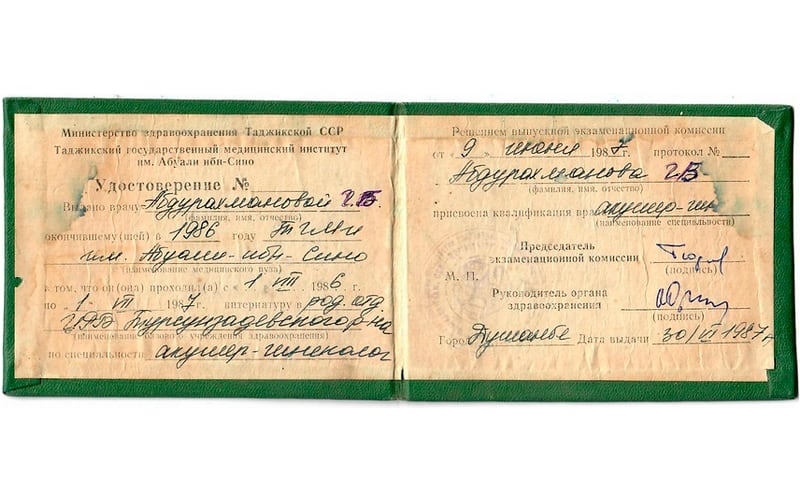 Министерство здравоохранения Таджикской ССР
Таджикский государственный медицинский институт
им. Абуали ибн-Сино
Удостоверение №
Выдано врачу Абдурахмановой Г.Б.
(фамилия, имя, отчество)
окончившему(шей) в 1986 году ТГМИ
им. Абуали-ибн-Сино
(наименование медицинского вуза)
в том, что он(она) проходил(а) с 1 VIII 1986 г.
по 1- VII 1987 г. интернатуру в род.отд
Турсунзадевского р-на
(наименование базового учреждения здравоохранения)
по специальности акушер-гинеколог
Решением выпускной экзаменационной комиссии
от « 9 » июня 1987 г. протокол №
Абдурахманова Г.Б
(фамилия, имя, отчество)
присвоена квалификация врача акушер-гин
(наименование специальности)
Председатель
экзаменационной комиссии
(подпись)
М. П.
Руководитель органа
здравоохранения
(подпись)
Город Душанбе Дата выдачи 30/VI 1987 г